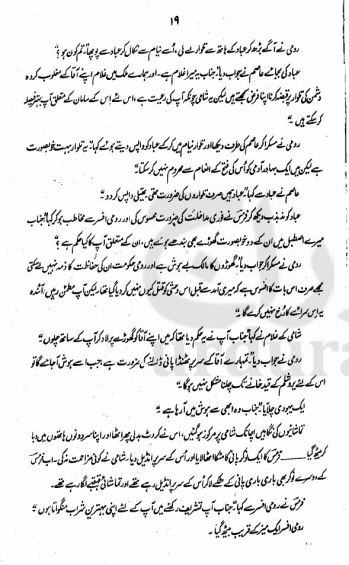 ۱۹
رومی نے آگے بڑھ کر عباد کے ہاتھ سے تلوار لے لی، اُسے نیام سے نکال کر عباد سے پوچھا "تم کون ہو؟"
عباد کی بجائے عاصم نے جواب دیا "جناب یہ میرا غلام ہے۔ اور ہمارے ملک میں غلام اپنے آقا کے مغلوب کردہ
دشمن کی تلوار پر قبضہ کرنا اپنا فرض سمجھتے ہیں لیکن یہ شامی چونکہ آپ کی رعیت ہے، اس لئے اِس کے سامان کے متعلق آپ بہتر فیصلہ
کر سکتے ہیں۔"
رومی نے مسکرا کر عاصم کی طرف دیکھا اور تلوار نیام میں کر کے عباد کو واپس دیتے ہوئے کہا "یہ تلوار بہت خوبصورت
ہے لیکن میں ایک بہادر آدمی کو اُس کی فتح کے انعام سے محروم نہیں کر سکتا۔"
عاصم نے عباد سے کہا "عباد ہمیں صرف تلواروں کی ضرورت تھی، تھیلی واپس کر دو۔"
عباد کو مذبذب دیکھ کر فرمس نے فوری مداخلت کی ضرورت محسوس کی اور رومی افسر سے مخاطب ہو کر کہا "جناب
میرے اصطبل میں ان کے دو خوبصورت گھوڑے بھی بندھے ہوئے ہیں، ان کے متعلق آپ کا کیا حکم ہے؟"
رومی نے مسکرا کر جواب دیا "گھوڑوں کا مالک بے ہوش ہے اور رومی حکومت ان کی حفاظت کا ذمہ نہیں لے سکتی
مجھے صرف اس بات کا افسوس ہے کہ میری آمد سے قبل اس وحشی کو قتل کیوں نہیں کر دیا گیا تھا لیکن آپ مطمئن رہیں، آئندہ
یہ اِس سرائے کا رُخ نہیں کرے گا۔"
شامی کے غلام نے کہا "جناب آپ نے یہ حکم دیا تھا کہ میں اپنے آقا کو گھوڑے پر لاد کر آپ کے ساتھ چلوں"
رومی نے جواب دیا "تمہارے آقا کے سر پر ٹھنڈا پانی ڈالنے کی ضرورت ہے، جب اسے ہوش آ جائے گا تو
اس کے لئے یروشلم کے قید خانے تک چلنا مشکل نہیں ہو گا۔"
ایک یہودی چلایا "جناب وہ ابھی سے ہوش میں آ رہا ہے۔"
تماشائیوں کی نگاہیں اچانک شامی پر مرکوز ہو گئیں، اُس نے کروٹ بدلی پھر اُٹھا اور اپنا سر دونوں ہاتھوں میں دبا
کر بیٹھ گیا۔ فرمس کا ایک نوکر پانی کا مٹکا اٹھا لایا اور اُس کے سر پر انڈیل دیا۔ شامی نے کوئی مزاحمت نہ کی۔ اب فرمس
کے دوسرے نوکر بھی باری باری پانی کے مٹکے لا کر اُس کے سر پر انڈیل رہے تھے اور تماشائی قہقہے لگا رہے تھے۔
فرمس نے رومی افسر سے کہا "جناب آپ تشریف رکھئے میں آپ کے لئے اپنی بہترین شراب منگواتا ہوں"
رومی افسر ایک میز کے قریب بیٹھ گیا۔